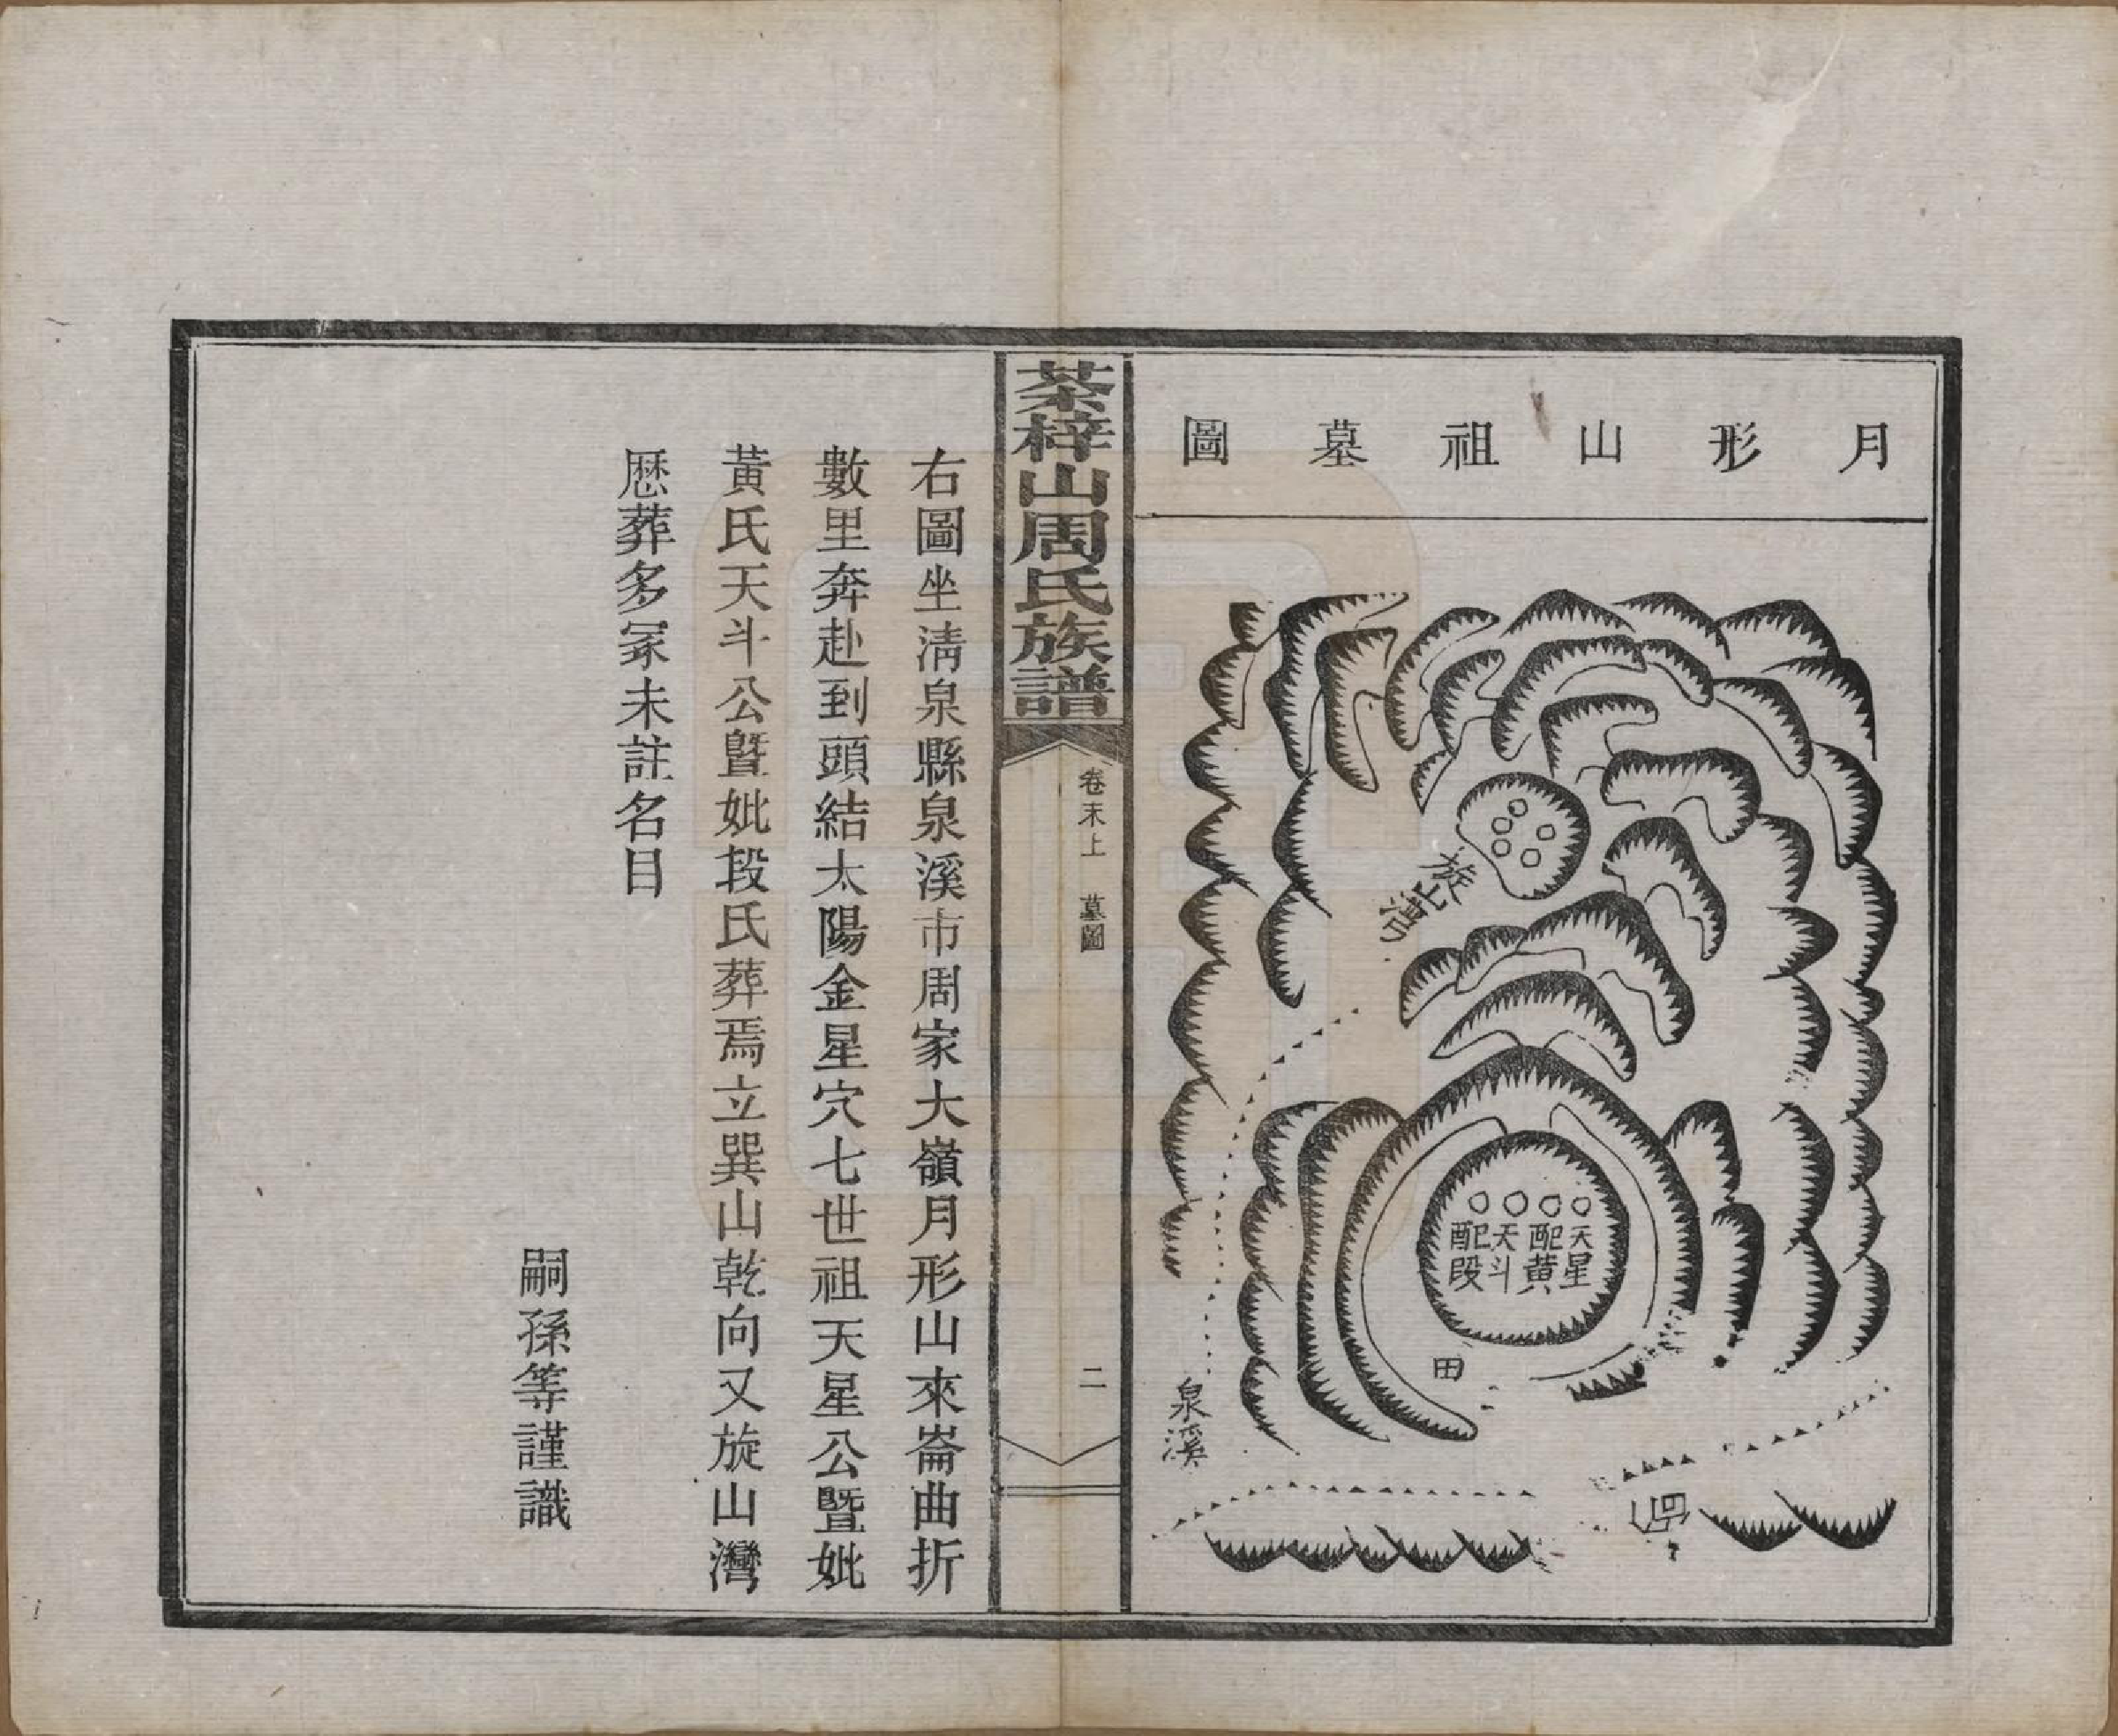 月形山祖墓圖
旋山灣
天星
配黄
天斗
配段
田
泉溪
茶梓山周氏族譜
卷末上
墓圖
二
右圖坐淸泉縣泉溪市周家大嶺月形山來崙曲折
數里奔赴到頭結太陽金星穴七世祖天星公暨妣
黃氏天斗公暨妣段氏葬焉立巽山乾向又旋山灣
歷葬多冢未註名目
嗣孫等謹識